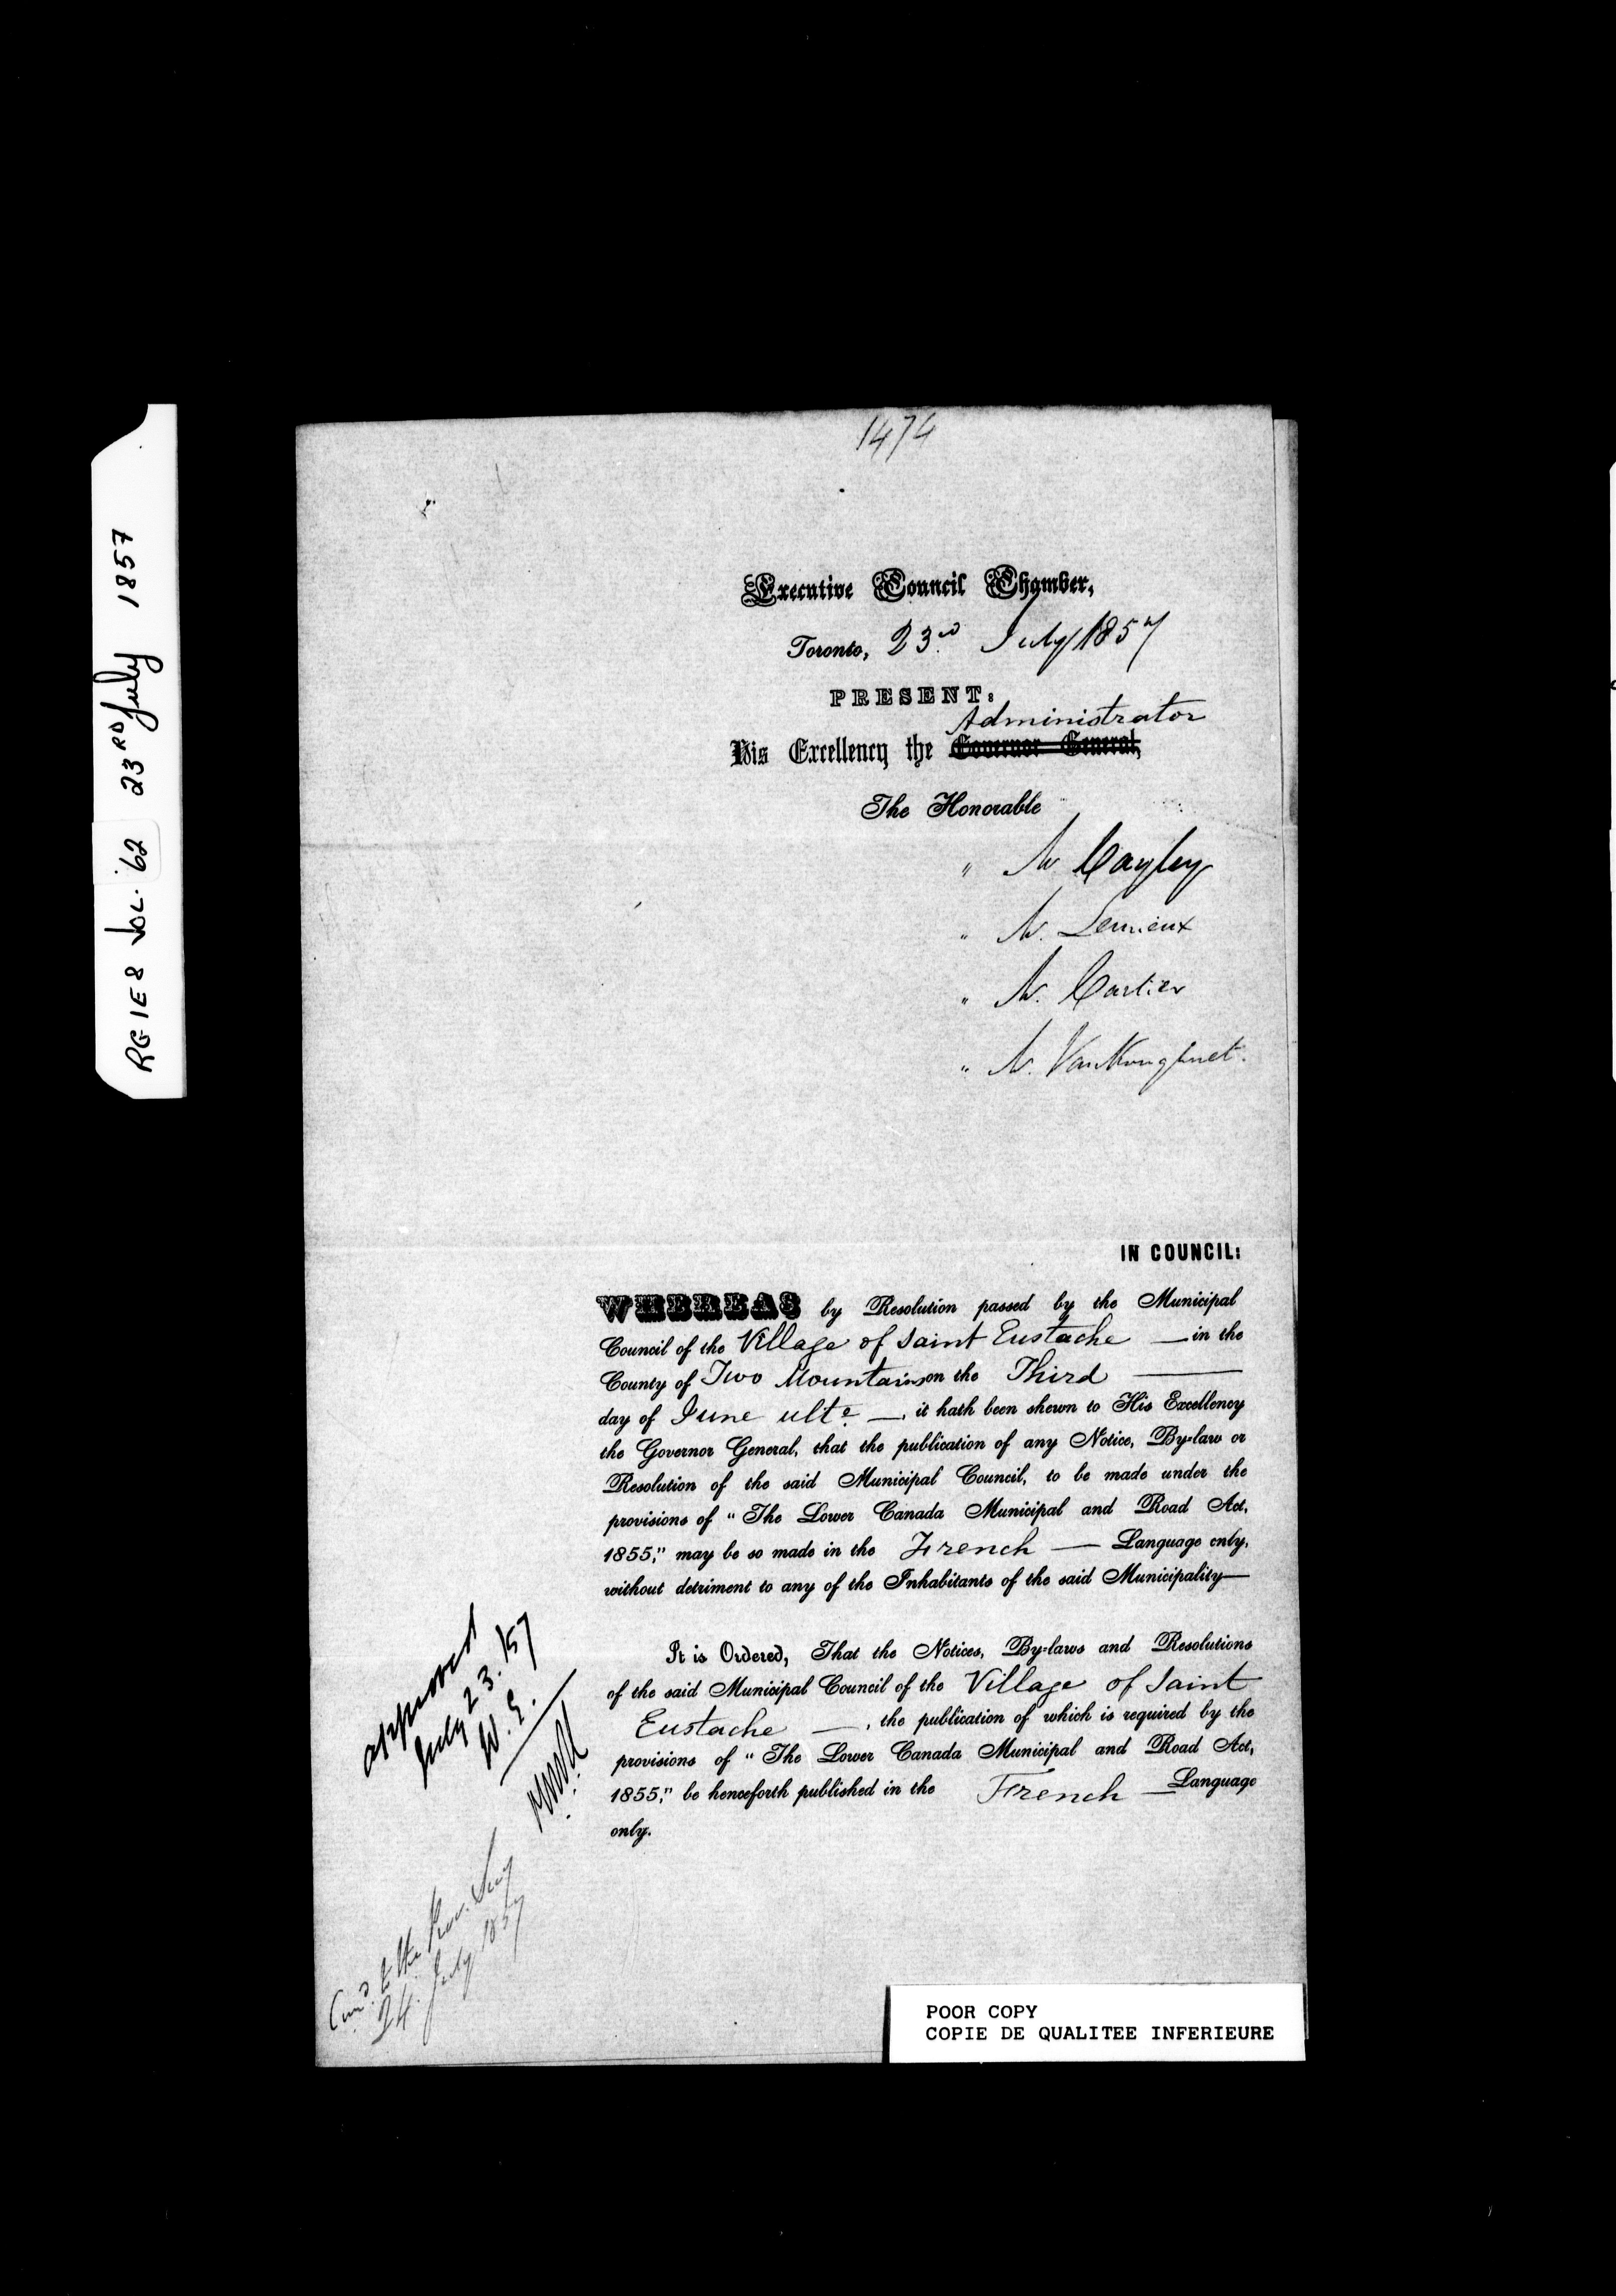 RG1E8 VOL. 62 23RD July 1857
1474
Executive Council Chamber,
Toronto, 23rd July 1857
PRESENT:
Administrator
His Excellency the Governor General,
The Honorable
" Mr Cayley
" Mr. Lemieux
" Mr. Cartier
" Mr. VanKoughnet.
IN COUNCIL:
WHEREAS by Resolution passed by the Municipal
Council of the Village of Saint Eustache — in the
County of Two Mountains on the Third —
day of June ulto. —, it hath been shewn to His Excellency
the Governor General, that the publication of any Notice, By-law or
Resolution of the said Municipal Council, to be made under the
provisions of "The Lower Canada Municipal and Road Act,
1855," may be so made in the French — Language only,
without detriment to any of the Inhabitants of the said Municipality—
It is Ordered, That the Notices, By-laws and Resolutions
of the said Municipal Council of the Village of Saint
Eustache —, the publication of which is required by the
provisions of "The Lower Canada Municipal and Road Act,
1855," be henceforth published in the French — Language
only.
approved
July 23. /57
W. E.
to the Prov. Secy
24. July 1857
POOR COPY
COPIE DE QUALITEE INFERIEURE